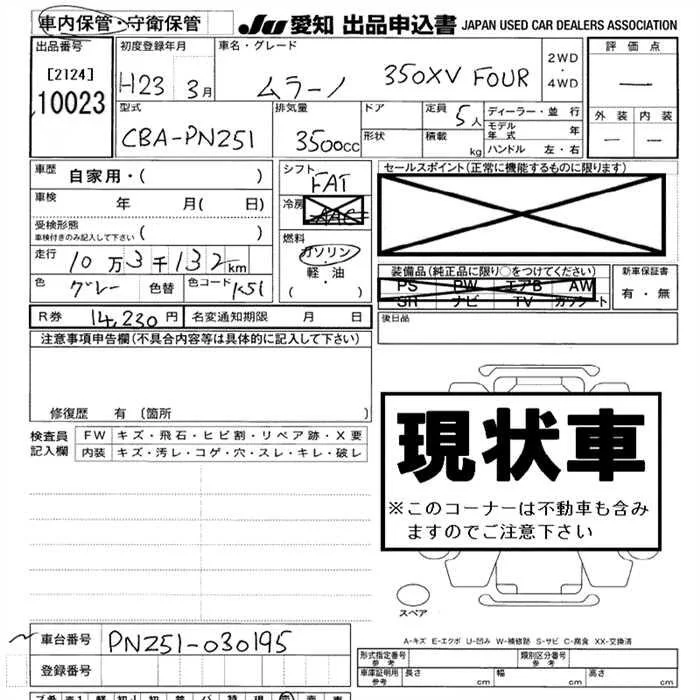 車内保管・守衛保管 JU 愛知 出品申込書 JAPAN USED CAR DEALERS ASSOCIATION
出品番号 初度登録年月 車名・グレード 評価点
[2124] H23 3月 ムラーノ 350XV FOUR 2WD・4WD —
10023 外装 内装
型式 排気量 ドア 定員 5人 ディーラー・並行
CBA-PNZ51 3500cc 形状 積載 kg モデル年式 年 — —
ハンドル 左・右
車歴 自家用・( ) シフト FAT セールスポイント(正常に機能するものに限ります)
車検 年 月( 日) 冷房 AAC
受検形態
車検付きのみ記入して下さい ( ) 燃料 ガソリン・軽・油 ( )
走行 10万3千132km 装備品(純正品に限り○をつけてください) 新車保証書
色 グレー 色替 色コード K51 PS PW エアB AW 有・無
SR ナビ TV カワシート
R券 14,230円 名変通知期限 月 日 後日品
注意事項申告欄(不具合内容等は具体的に記入して下さい)
修復歴 有 (箇所 )
検査員記入欄 FW キズ・飛石・ヒビ割・リペア跡・X要
内装 キズ・汚レ・コゲ・穴・スレ・キレ・破レ
現状車
※このコーナーは不動車も含み
ますのでご注意下さい
スペア
A-キズ E-エクボ U-凹み W-補修跡 S-サビ C-腐食 XX-交換済
車台番号 PNZ51-030195 形式指定番号 参考 類別区分番号 参考
登録番号 車庫証明用 参考 長さ cm 幅 cm 高さ cm